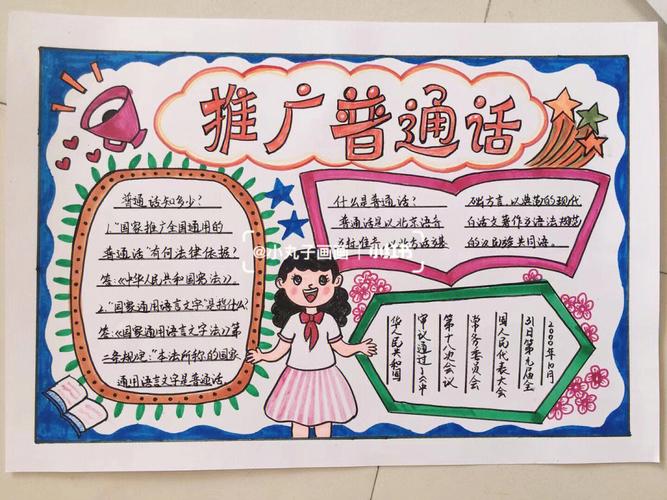 推广普通话
普通话知多少?
1."国家推广全国通用的
普通话"有何法律依据?
答:《中华人民共和国宪法》.
2."国家通用语言文字"是指什么?
答:《国家通用语言文字法》第
二条规定:"本法所称的国家
通用语言文字是普通话
什么是普通话?
普通话是以北京语音
为标准音,以北方话为基
础方言,以典范的现代
白话文著作为语法规范
的汉民族共同语。
@小丸子画画 | 小红书
2000年10月
31日第九届全
国人民代表大会
常务委员会
第十八次会议
审议通过了《中
华人民共和国